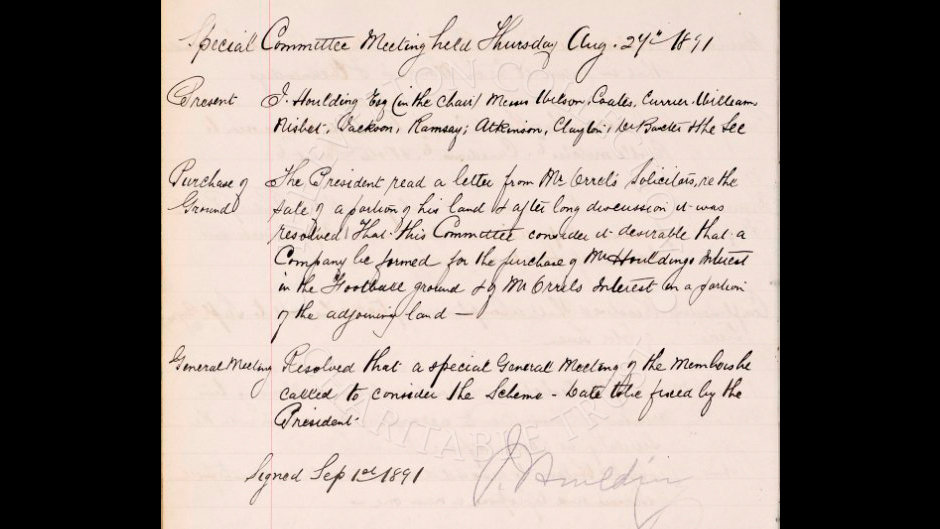 Special Committee Meeting held Thursday Aug. 27th 1891
Present J. Houlding Esq (in the chair) Messrs Wilson, Coates, Currier, William
Nisbet, Jackson, Ramsay, Atkinson, Clayton, Dr Baxter & the Sec
Purchase of Ground
The President read a letter from Mr Orrel's Solicitors, re the
sale of a portion of his land & after long discussion it was
resolved That this Committee consider it desirable that a
Company be formed for the purchase of Mr Houldings Interest
in the Football ground & of Mr Orrels Interest in a portion
of the adjoining land —
General Meeting Resolved that a special General Meeting of the Members be
called to consider the Scheme - Date to be fixed by the
President.
Signed Sep 1st 1891 J. Houlding
CHARITABLE TRUST